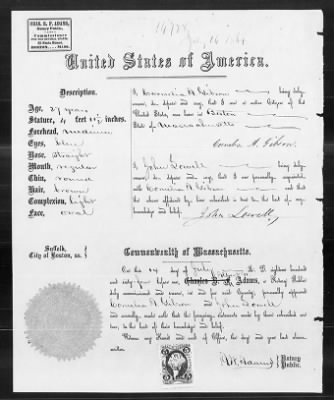 CHAS. B. F. ADAMS,
Notary Public,
Commissioner
BOSTON, MASS.
14928
July 16 1864
United States of America.
Description.
Age, 27 years
Stature, 4 feet 11½ inches
Forehead, medium
Eyes, blue
Nose, straight
Mouth, regular
Chin, round
Hair, brown
Complexion, light
Face, oval
I Cornelia A Gibson being duly
sworn, do depose and say, that I am a native Citizen of the
United States, was born in Boston
State of Massachusetts
Cornelia A. Gibson.
I John Lowell being duly
sworn, do depose and say, that I am personally acquainted
with Cornelia A Gibson and that
the above affidavit by her subscribed is true to the best of my
knowledge and belief.
John Lowell.
Suffolk,
City of Boston, ss.
Commonwealth of Massachusetts.
On this 14 day of July A. D. eighteen hundred
and sixty four before me, Adams, a Notary Public
duly commissioned and sworn, personally appeared
Cornelia A Gibson and John Lowell
and severally made oath that the foregoing statements made by them subscribed are
true, to the best of their knowledge and belief.
Witness my Hand and seal of Office, the day and year last above
written.
Notary
Public.